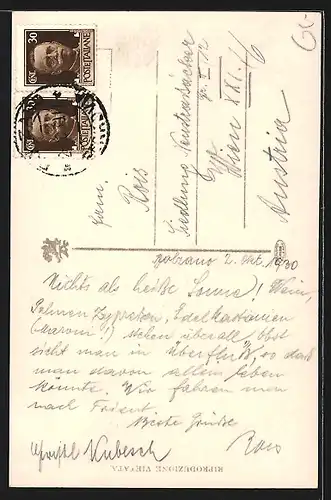 30 POSTE ITALIANE 30
30 30
Fam.
Rois
Siedlung Neustrassäcker
Wien XXI/6
Austria
Bolzano 2. Okt. 1930
Nichts als heiße Sonne! Wein,
Palmen Zypressen, Edelkastanien
(Maroni!) stehen überall. Obst
sieht man in Überfluß, so daß
man davon allein leben
könnte. Wir fahren nun
nach Trient.
Beste Grüße
Rois
Kubesch
RIPRODUZIONE VIETATA